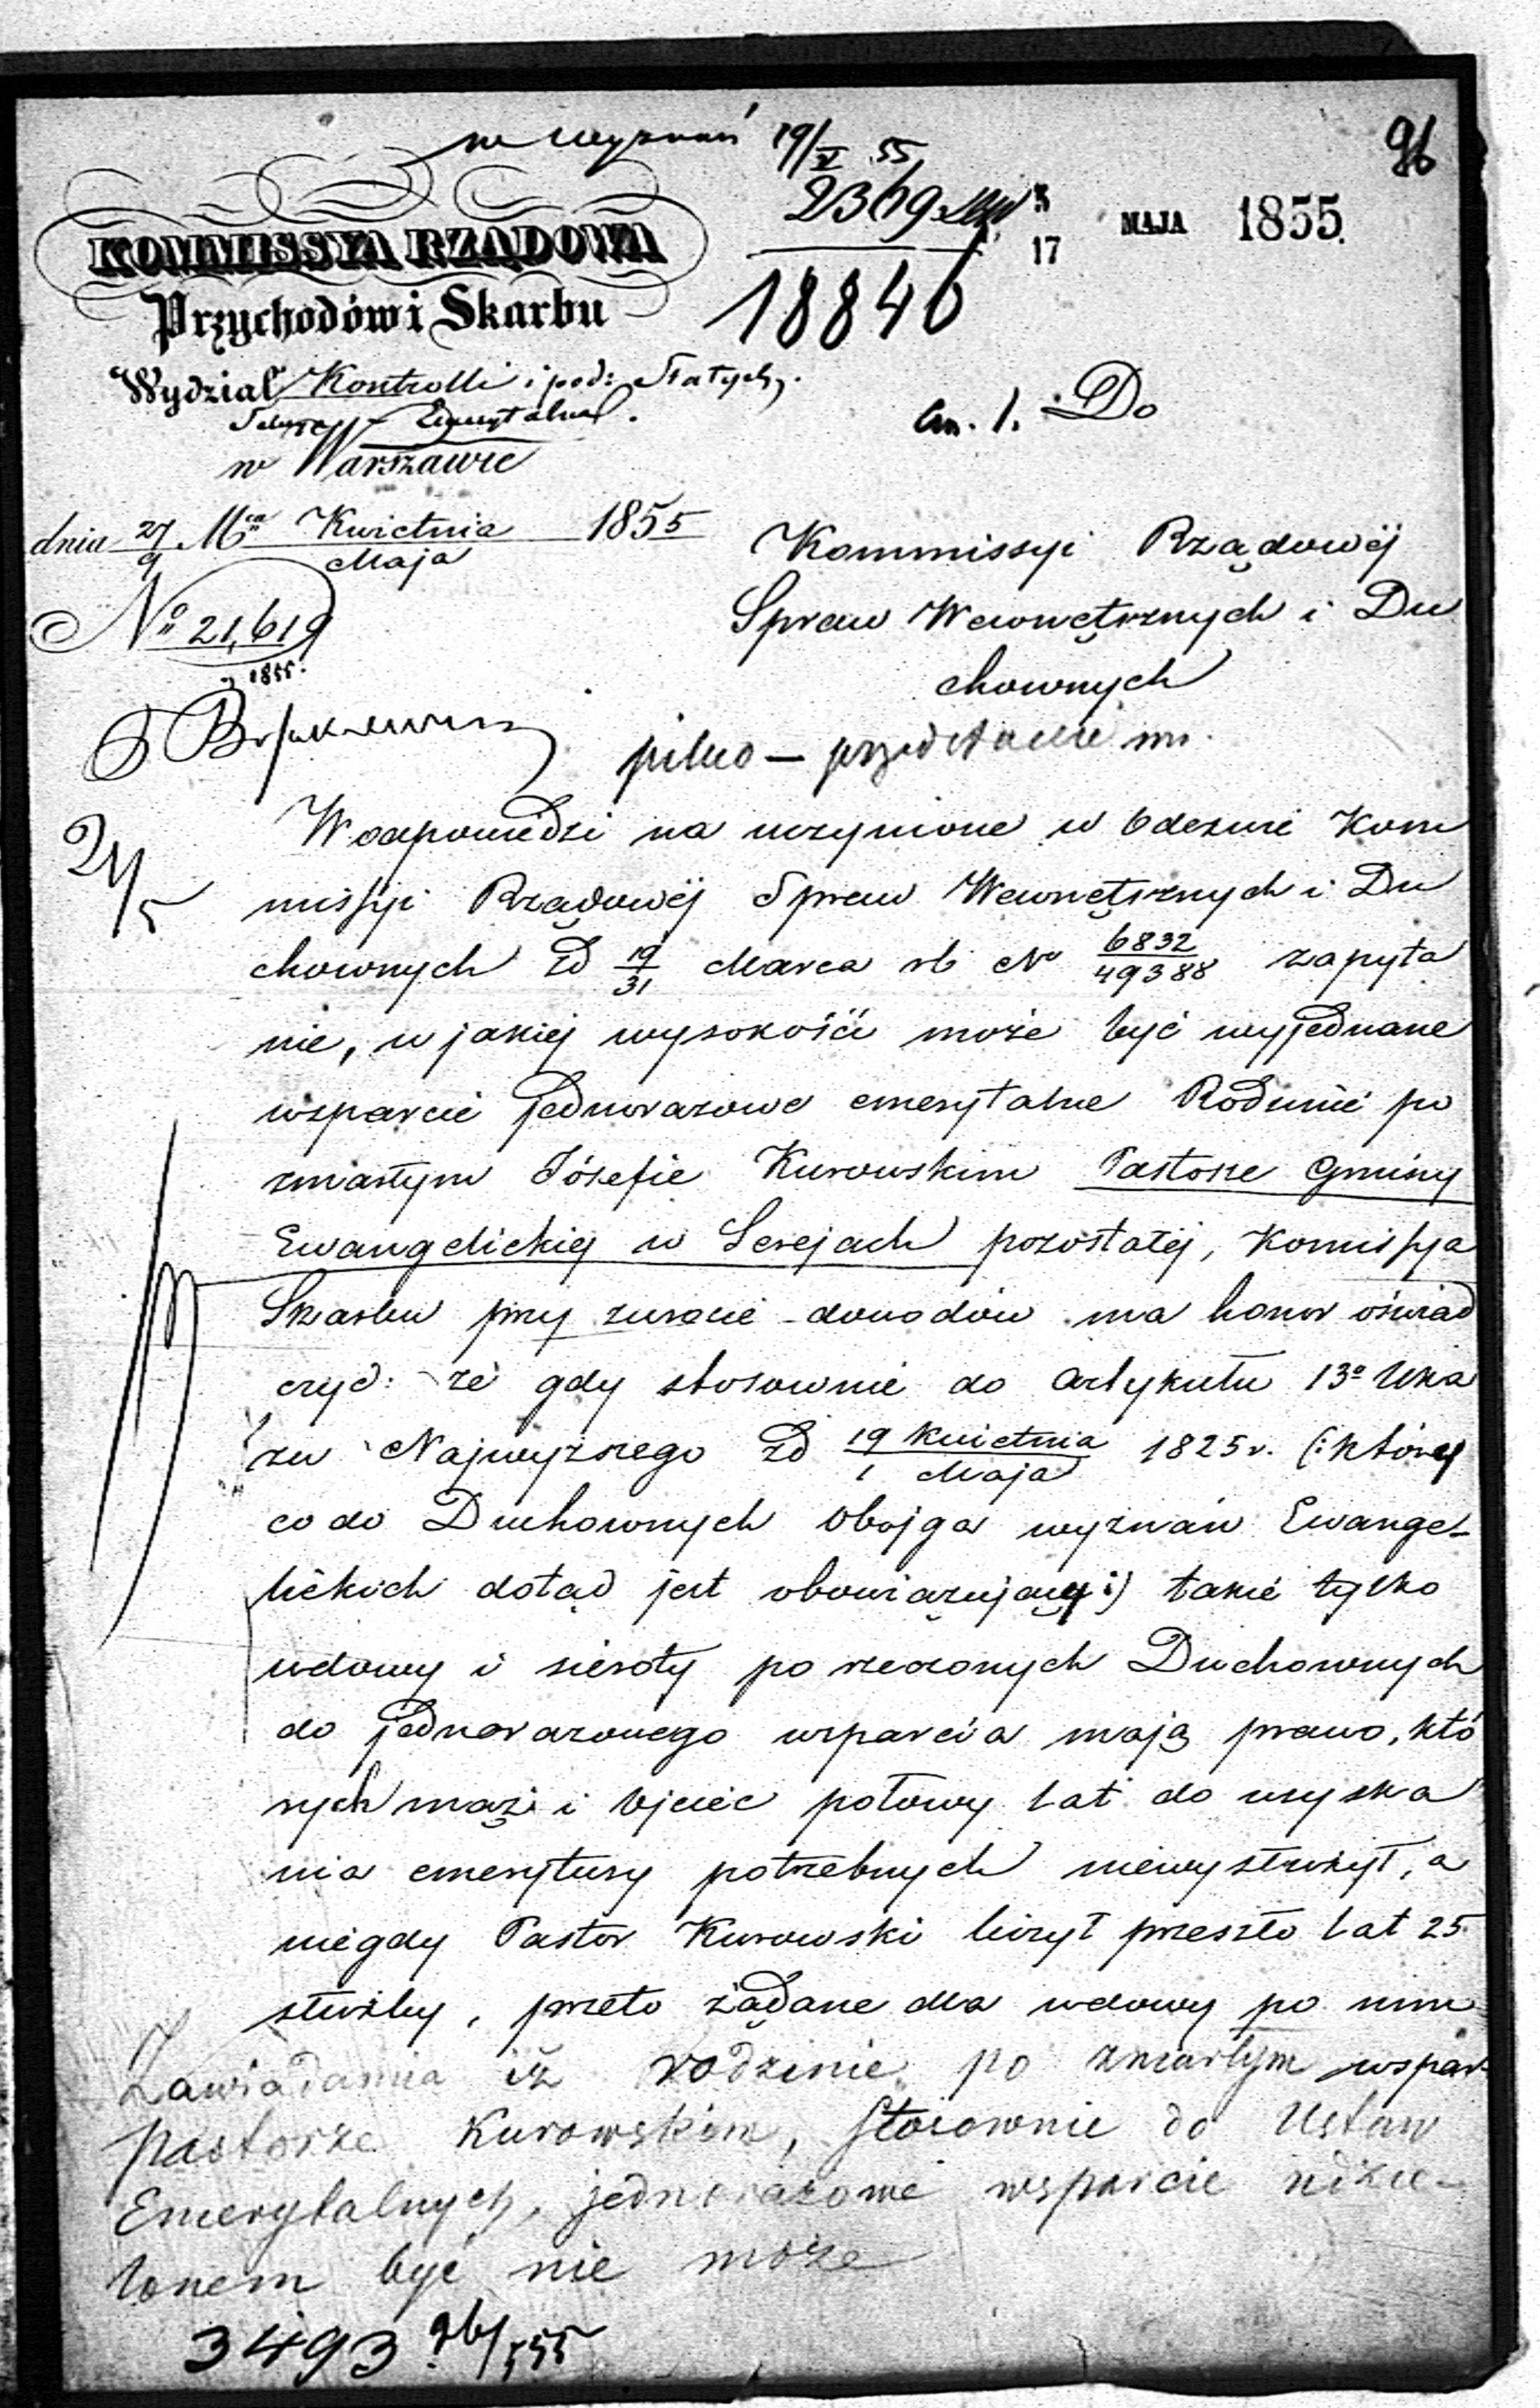 w Wyznań 19/V 55
96
2369
5
17 MAJA 1855.
18846
KOMMISSYA RZĄDOWA
Przychodów i Skarbu
Wydział Kontrolli i pod: Stałych.
Sekcya Emerytalna.
w Warszawie
an. 1. Do
dnia 27/9 Mca Kwietnia/Maja 1855
Kommissyi Rządowéj
Spraw Wewnętrznych i Du
chownych
No 21,619
1855.
pilno — przedstawić mi.
21/5
W odpowiedzi na uczynione w Odezwie Kom
missyi Rządowéj Spraw Wewnętrznych i Du
chownych zd 19/31 Marca rb No 6832/49388 zapyta
nie, w jakiej wysokości może być wyjednane
wsparcie jednorazowe emerytalne Rodzinie po
zmarłym Józefie Kurowskim Pastorze Gminy
Ewangelickiej w Serejach pozostałéj, Komissya
Skarbu przy zwrocie dowodów ma honor oświad
czyć: że gdy stosownie do Artykułu 13o Uka
zu Najwyższego zd 19 Kwietnia/1 Maja 1825 r. (: który
co do Duchownych obojga wyznań Ewange-
lickich dotąd jest obowiązujący :) takie tylko
wdowy i sieroty po rzeczonych Duchownych
do jednorazowego wsparcia mają prawo, któ
rych mąż i ojciec połowy lat do uzyska
nia emerytury potrzebnych niewysłużył, a
niegdy Pastor Kurowski liczył przeszło lat 25
służby, przeto żądane dla wdowy po nim
wspar-
Zawiadamia iż rodzinie po zmarłym
Pastorze Kurowskim, stosownie do Ustaw
Emerytalnych, jednorazowe wsparcie udzie-
lonem być nie może
3493 26/5 55